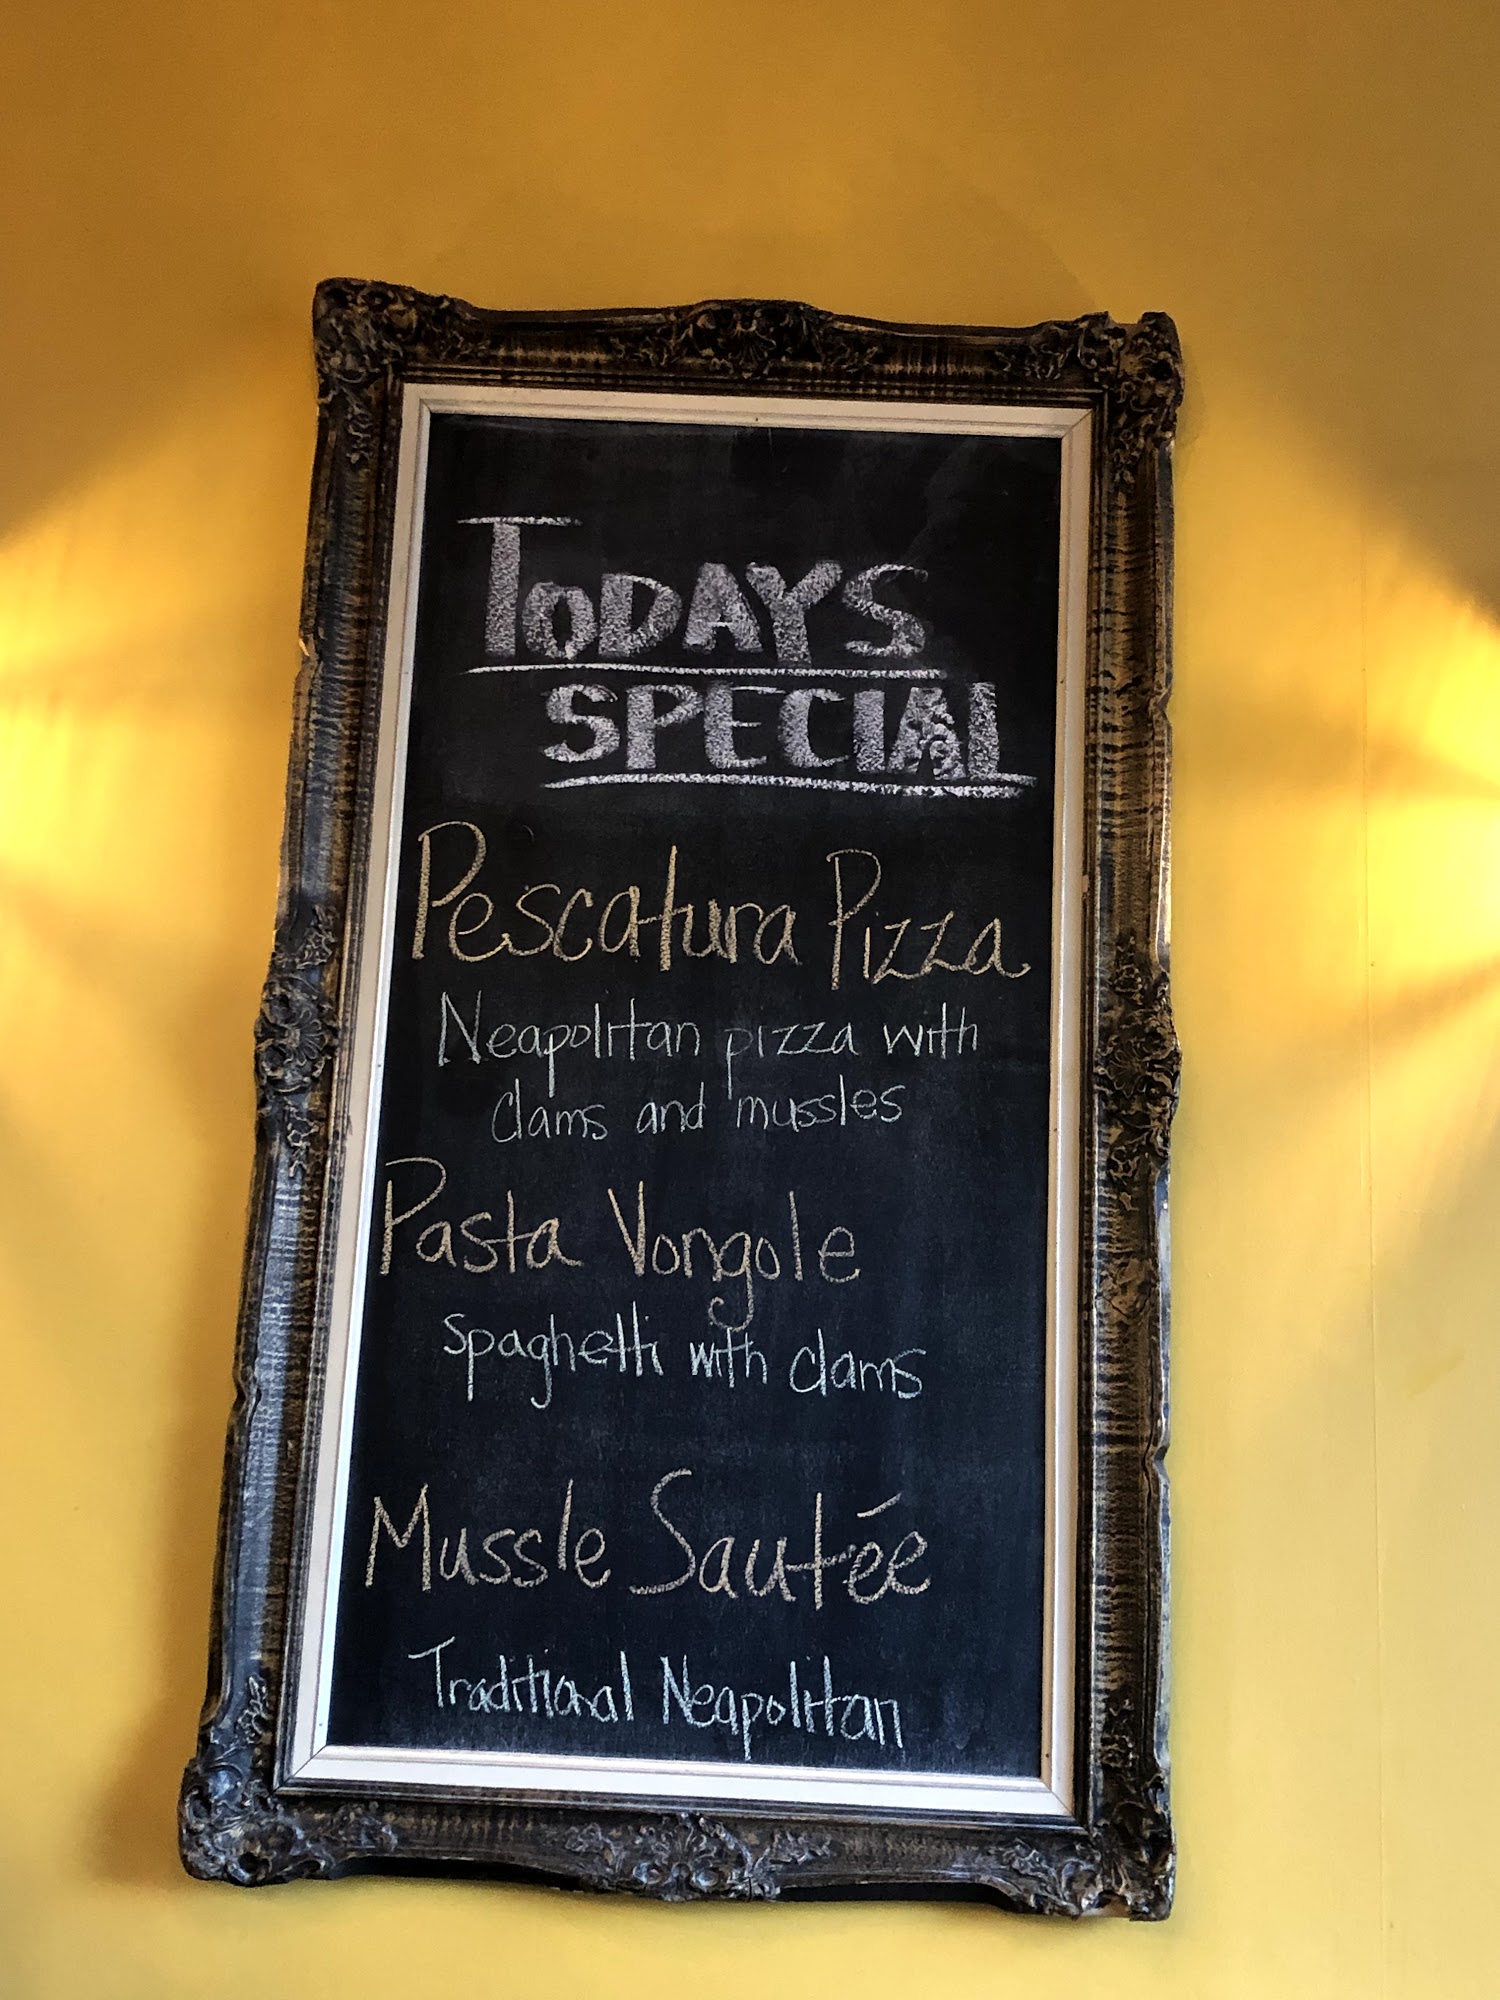 TODAYS
SPECIAL
Pescatura Pizza
Neapolitan pizza with
clams and mussles
Pasta Vongole
spaghetti with clams
Mussle Sautée
Traditional Neapolitan